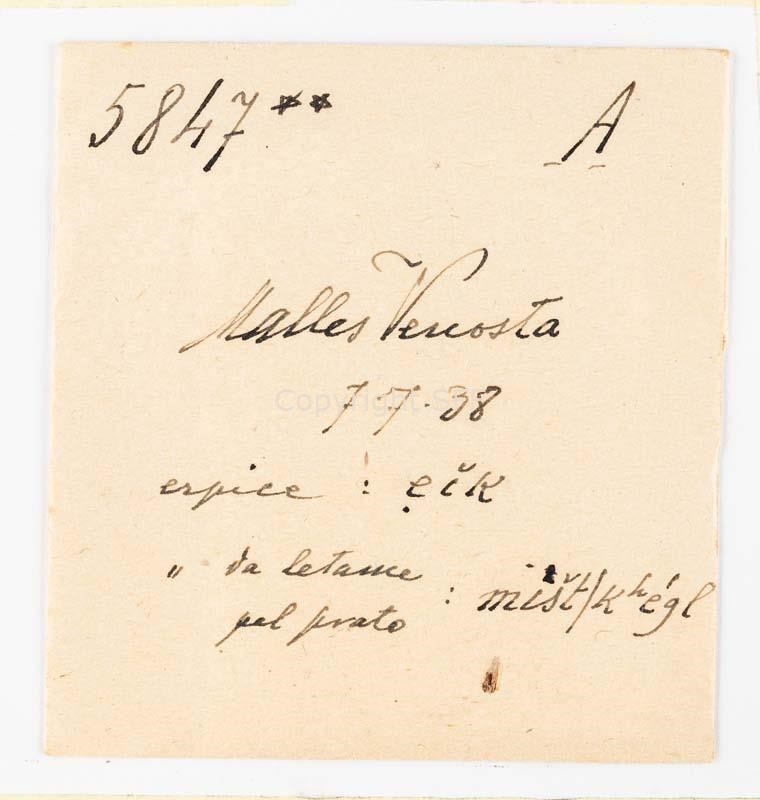 5847** A
Malles Venosta
7.7.38
erpice : ẹčk
" da letame
pel prato : mišt/kʰégl